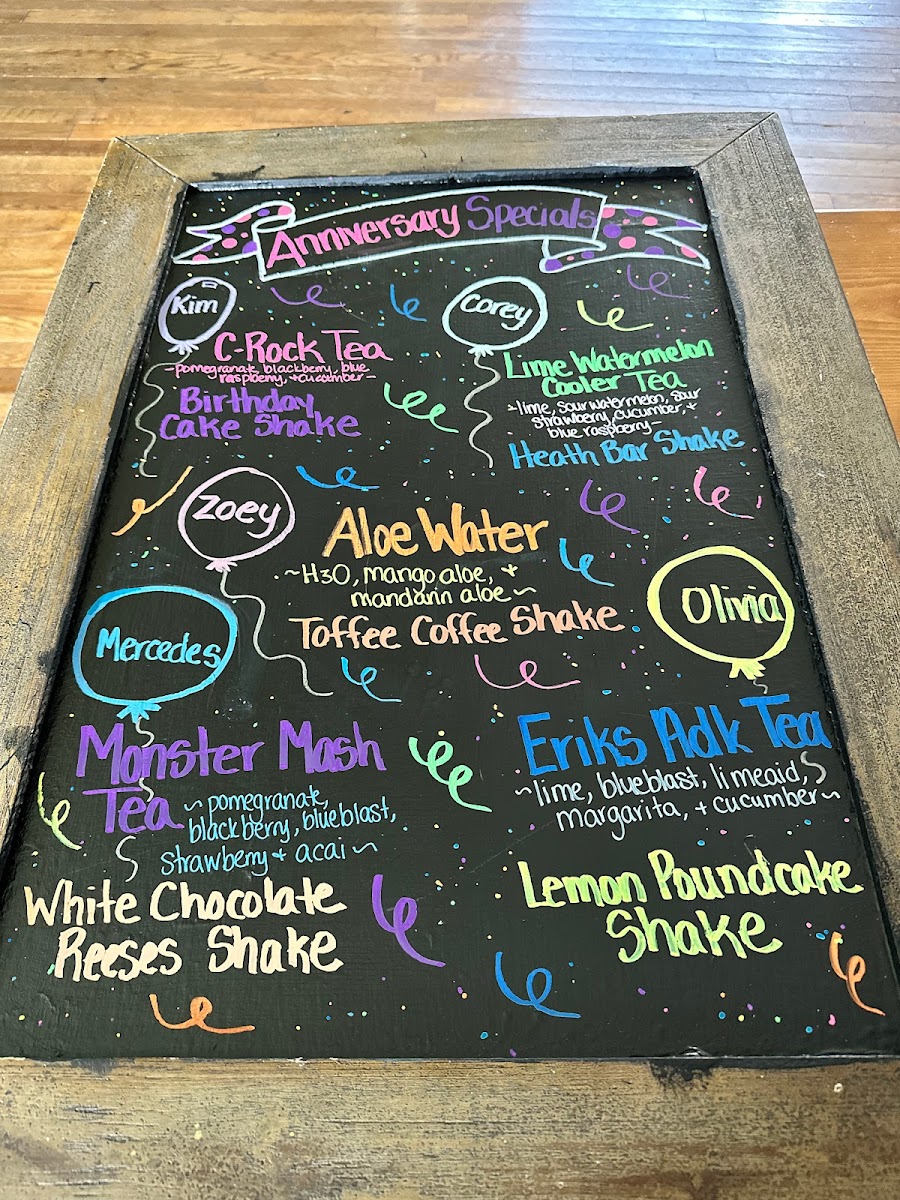 Anniversary Specials
Kim
C-Rock Tea
-pomegranate, blackberry, blue
raspberry, + cucumber-
Birthday
Cake Shake
Corey
Lime Watermelon
Cooler Tea
~lime, sour watermelon, sour
strawberry, cucumber, +
blue raspberry~
Heath Bar Shake
Zoey
Aloe Water
~H3O, mango aloe, +
mandarin aloe~
Toffee Coffee Shake
Mercedes
Monster Mash
Tea ~pomegranate,
blackberry, blueblast,
strawberry + acai~
White Chocolate
Reeses Shake
Olivia
Eriks Adk Tea
~lime, blueblast, limeaid,
margarita, + cucumber~
Lemon Poundcake
Shake